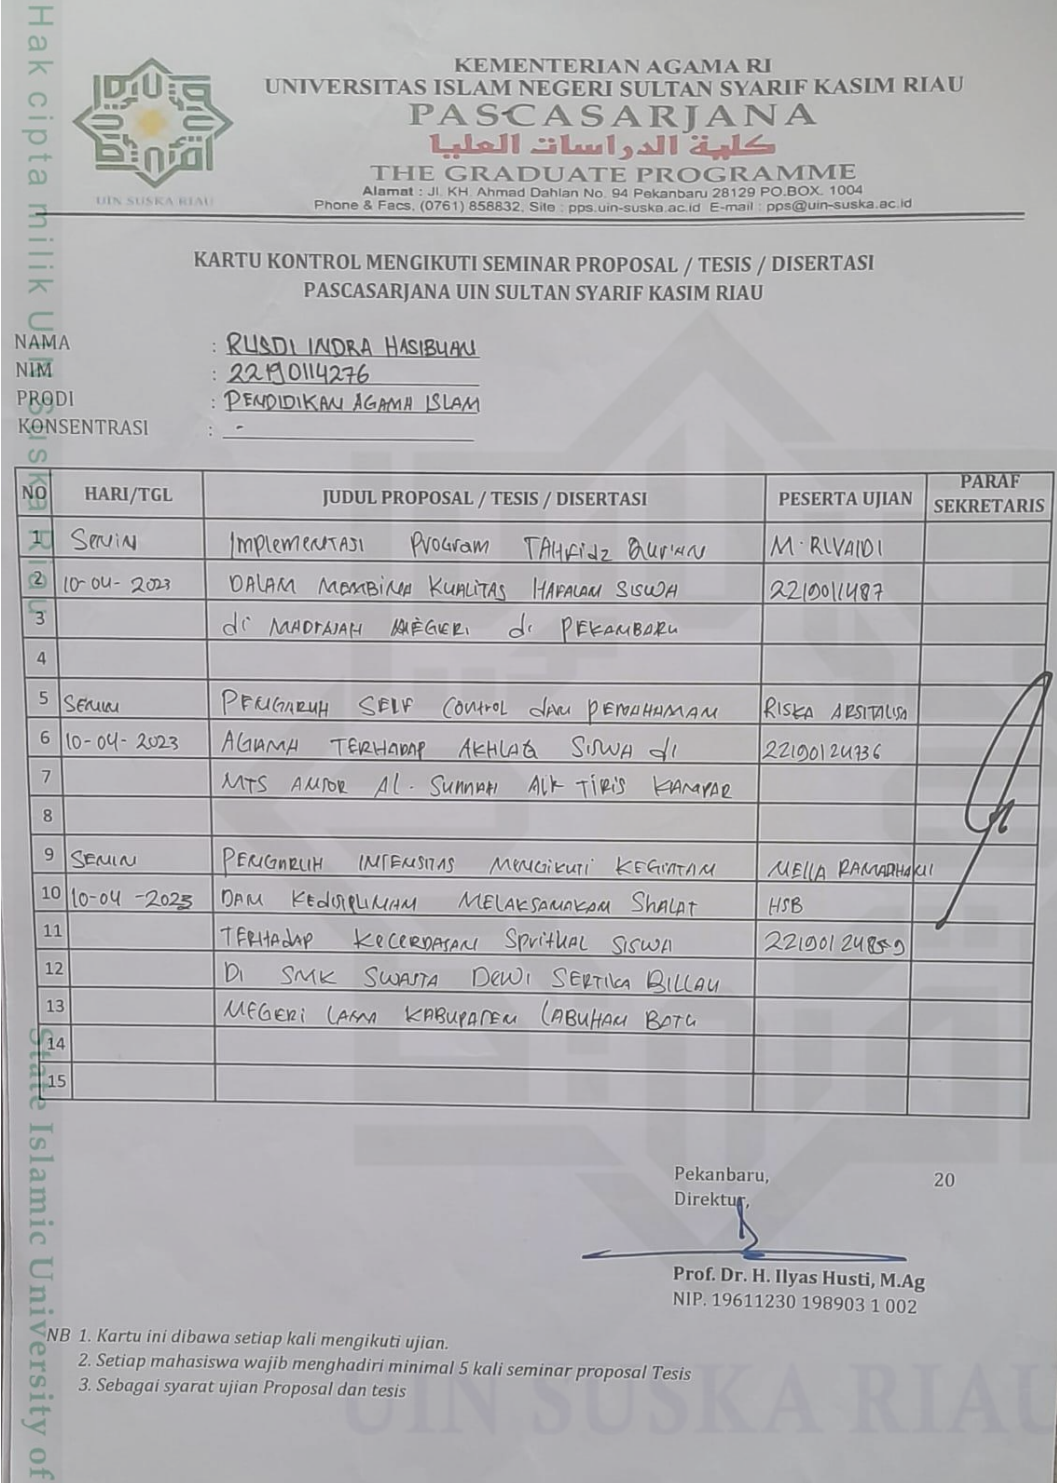 Hak cipta milik UIN Suska Riau
State Islamic University of
UIN SUSKA RIAU
KEMENTERIAN AGAMA RI
UNIVERSITAS ISLAM NEGERI SULTAN SYARIF KASIM RIAU
PASCASARJANA
كلية الدراسات العليا
THE GRADUATE PROGRAMME
Alamat : Jl. KH. Ahmad Dahlan No. 94 Pekanbaru 28129 PO.BOX. 1004
Phone & Facs, (0761) 858832, Site : pps.uin-suska.ac.id E-mail : pps@uin-suska.ac.id
KARTU KONTROL MENGIKUTI SEMINAR PROPOSAL / TESIS / DISERTASI
PASCASARJANA UIN SULTAN SYARIF KASIM RIAU
NAMA : RUSDI INDRA HASIBUAN
NIM : 22190114276
PRODI : PENDIDIKAN AGAMA ISLAM
KONSENTRASI : -
NO HARI/TGL JUDUL PROPOSAL / TESIS / DISERTASI PESERTA UJIAN PARAF SEKRETARIS
1 Senin Implementasi Program TAHFidz Qur'an M. RIVAIDI
2 10-04-2023 DALAM MEMBINA KUALITAS HAFALAN SISWA 2219011487
3 di MADRASAH NEGERI di PEKANBARU
4
5 SENIN PENGARUH SELF Control dan PEMAHAMAN RISKA ARSITALISA
6 10-04-2023 AGAMA TERHADAP AKHLAQ SISWA di 22190124736
7 MTS Al-Sunnah TIRIS KAMPAR
8
9 SENIN PENGARUH INTENSITAS MENGIKUTI KEGIATAN MELLA RAMADHANI
10 10-04-2023 DAN KEDISIPLINAN MELAKSANAKAN SHALAT HSB
11 TERHADAP KECERDASAN Spritual SISWA 22190124859
12 DI SMK SWASTA DEWI SERTIKA BILLAU
13 NEGERI LAMA KABUPATEN LABUHAN BATU
14
15
Pekanbaru, 20
Direktur,
Prof. Dr. H. Ilyas Husti, M.Ag
NIP. 19611230 198903 1 002
NB 1. Kartu ini dibawa setiap kali mengikuti ujian.
2. Setiap mahasiswa wajib menghadiri minimal 5 kali seminar proposal Tesis
3. Sebagai syarat ujian Proposal dan tesis
UIN SUSKA RIAU